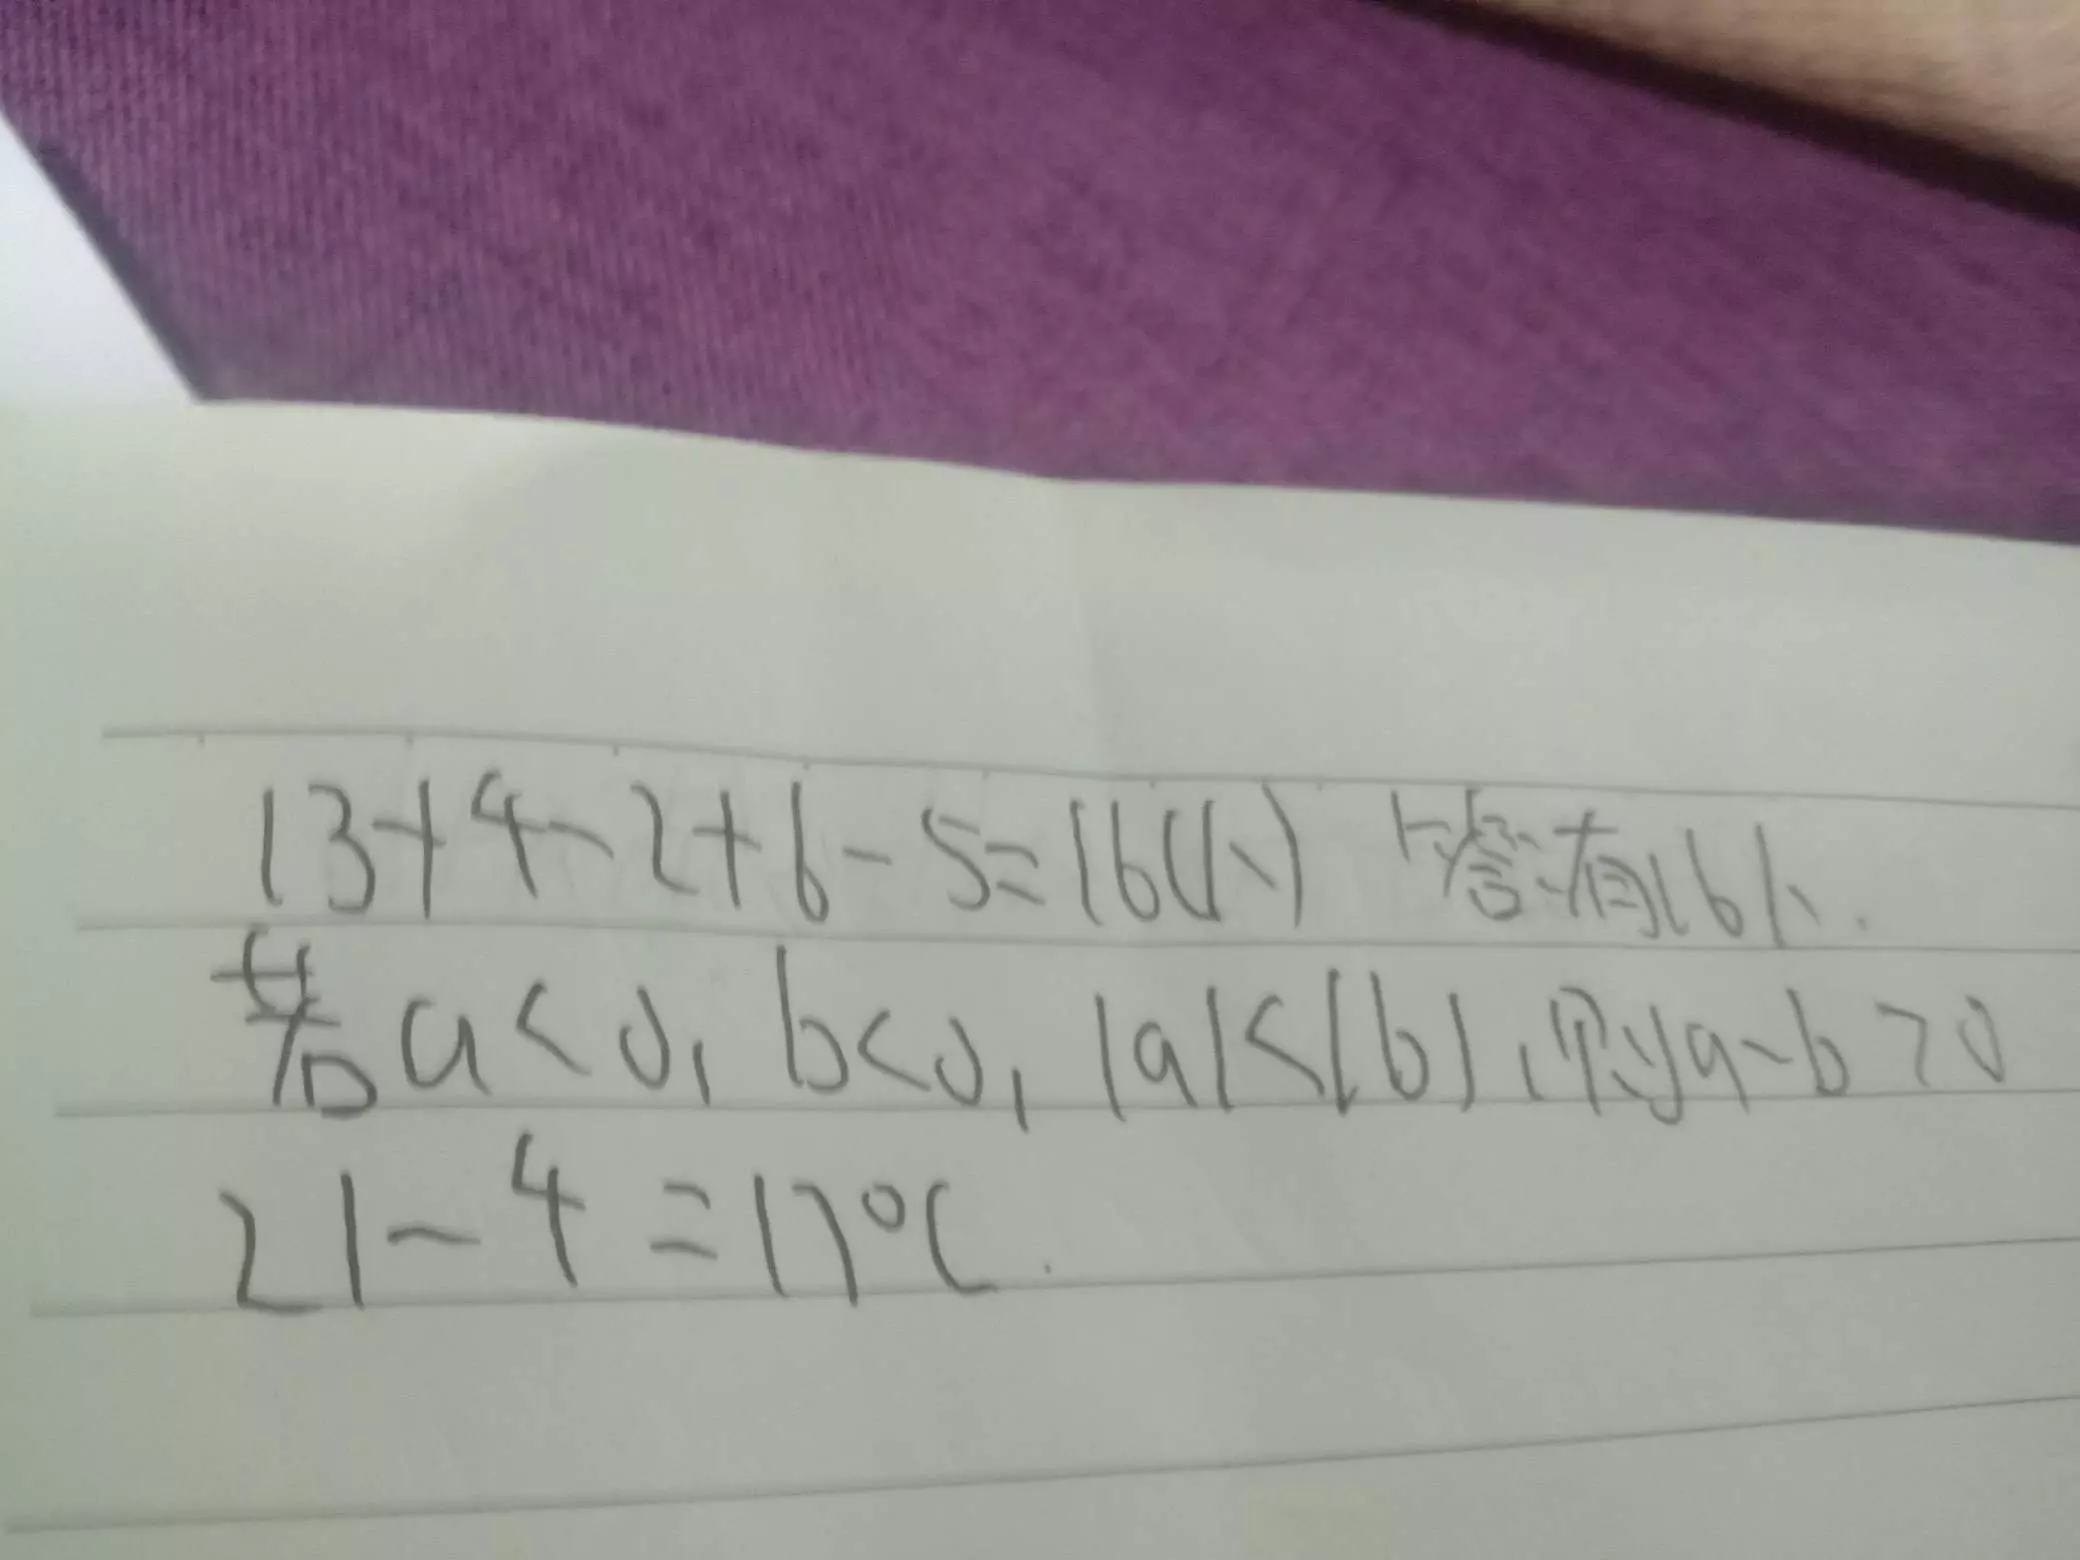 13+4-2+6-5=16(人) 答:有16人.
若a<0,b<0,|a|<|b|,则a-b>0
21-4=17℃.